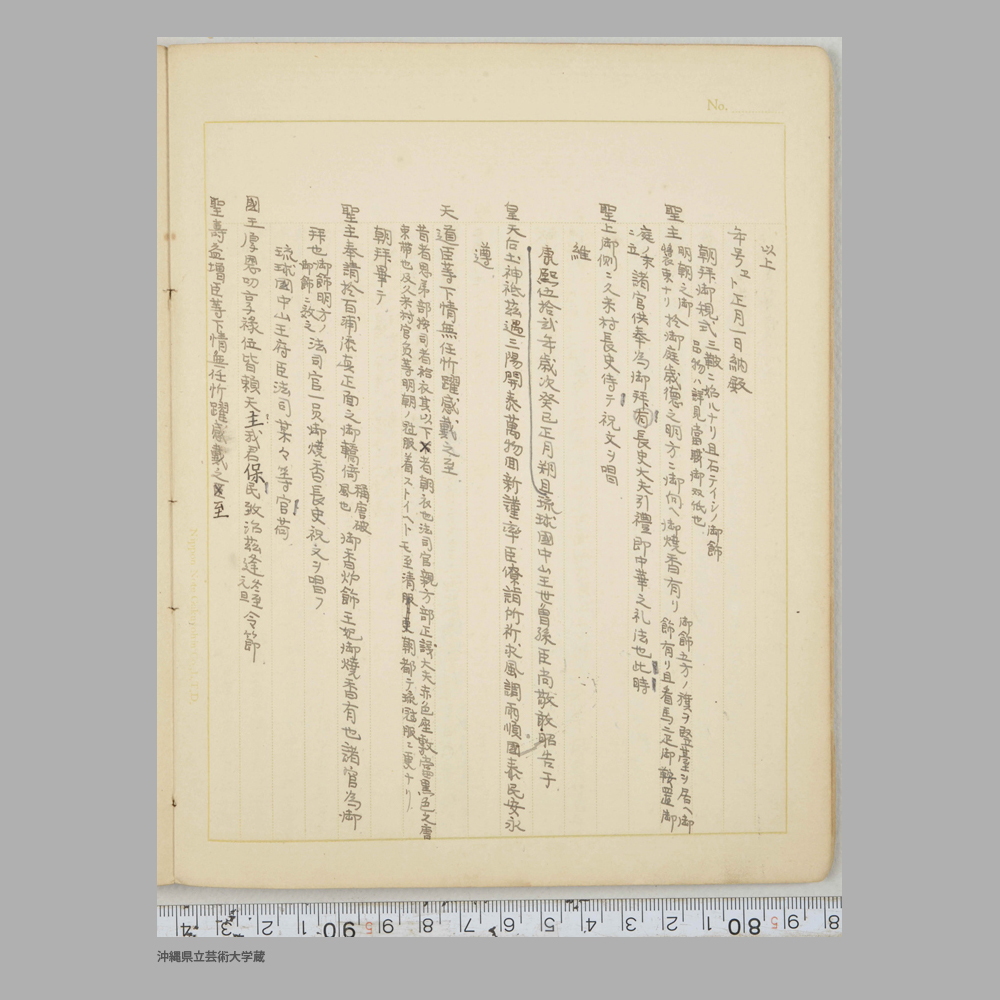 No.
以上
年号ヱト正月一日納殿
朝拝御規式三鞁ニ始ルナリ且石テイシノ御飾
品物ハ詳見當職御双紙也
明朝之御
聖主装束ナリ於御庭歳徳之明方ニ御向ヘ御燒香有リ
御飾立方ノ籏ヲ竪基ヲ居ヘ御
飾有リ且看馬之疋御鞍置御
庭ノ末
ニ立 諸官供奉為御拝有長史大夫引禮即中華之礼法也此時
聖上御側ニ久米村長史侍テ祝文ヲ唱
維
康熙伍拾貳年歳次癸巳正月朔且琉球國中山王世曽孫臣尚敬敢昭告于
皇天后土神祗茲遇三陽開泰萬物回新謹率臣僚誥所祈求風調雨順國泰民安永
遵
天道臣等下情無任忻躍感戴之至
昔者思弟部按司者袷衣其以下者朝衣也法司官親方部正議大夫赤色座敷當黒色之唐
束帯也及久米村官員等明朝ノ冠服着ストイヘトモ至清服更朝都テ琉冠服ニ更ナリ
朝拝畢テ
聖主奉請於百浦添真正面之御轎倚
稱唐破
風也 御香炉飾王妃御燒香有也諸官為御
拝也御飾明方ノ
御飾ニ效之 法司官一员御燒香長史祝文ヲ唱フ
琉球國中山王府臣法司某々等官荷
國王厚恩叨享祿位皆頼天主我君保民致治茲逢冬至令節
元旦
聖壽益增臣等下情無任忻躍感戴之至
4 3 2 1 90 9 8 7 6 5 4 3 2 1 80 9 8
沖縄県立芸術大学蔵